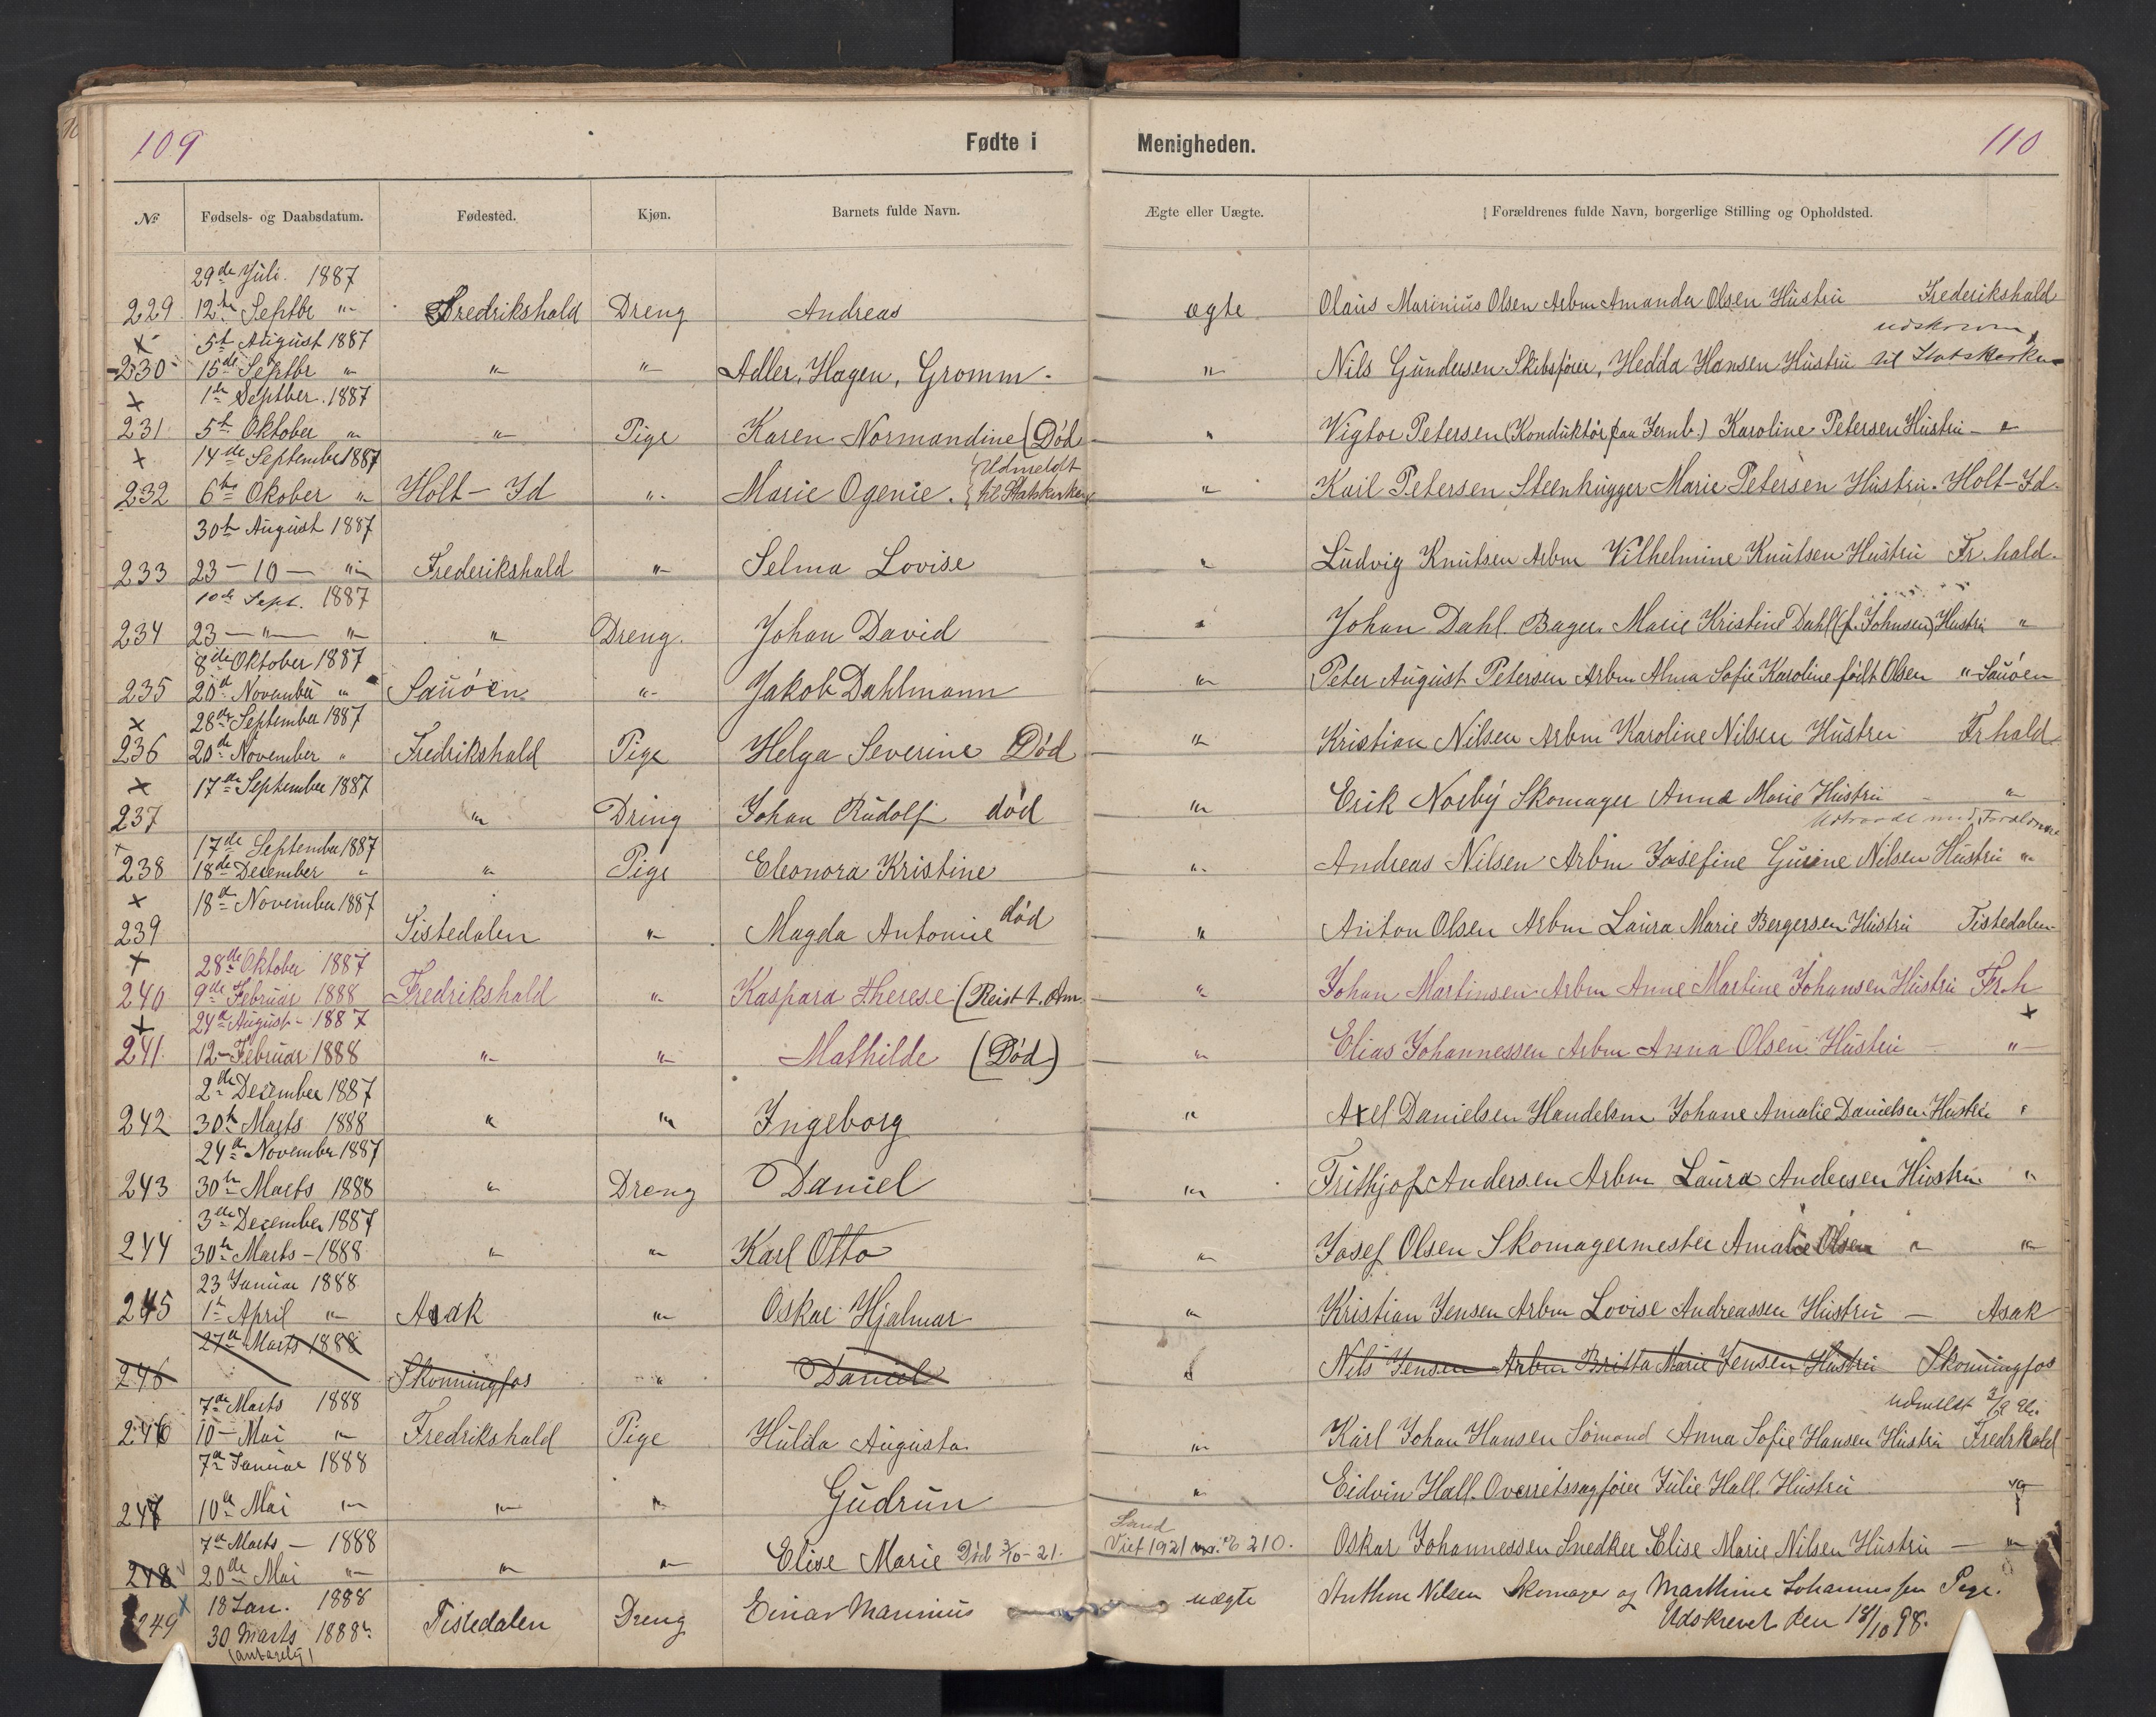 109
Fødte i Menigheden.
110
№
Fødsels- og Daabsdatum.
Fødested.
Kjøn.
Barnets fulde Navn.
Ægte eller Uægte.
Forældrenes fulde Navn, borgerlige Stilling og Opholdsted.
29de Juli. 1887
229 12te Septbr " Fredrikshald Dreng Andreas ægte Olaus Marinius Olsen Arbm Amanda Olsen Hustru Frederikshald
x 5te August 1887 udskreven
230 15de Septbr " " " Adler, Hagen, Gromm. " Nils Gundersen Skibsfører, Hedda Hansen Hustru til Statskirken
x 1te Septber. 1887
231 5te Oktober " " Pige Karen Normandine (Død " Vigtor Petersen (Konduktør paa Jernb.) Karoline Petersen Hustru - "
x 14de September 1887 Udmeldt
232 6te Okober " Holt - Id " Marie Ogenie. til Statskirken " Karl Petersen Steenhugger Marie Petersen Hustru. Holt-Id.
30te August 1887
233 23 - 10 - " Frederikshald " Selma Lovise " Ludvig Knutsen Arbm Vilhelmine Knutsen Hustru Fr. hald.
10de Sept. 1887
234 23 - " - " " Dreng. Johan David " Johan Dahl. Bager. Marie Kristine Dahl (f. Johnsen) Hustru "
8de Oktober 1887
235 20de November " Sauøen " Jakob Dahlmann " Peter August Petersen Arbm Alma Sofie Karoline født Olsen " Sauøen
x 28de September 1887
236 20de November " Fredrikshald Pige Helga Severine Død " Kristian Nilsen Arbm Karoline Nilsen Hustru Fr hald
x 17de September 1887
237 " Dreng Johan Rudolf død " Erik Norby Skomager Anna Marie Hustru - "
x 17de September 1887 Udtraadt med Forældrene
238 18de Desember " " Pige Eleonora Kristine " Andreas Nilsen Arbm Josefine Gurine Nilsen Hustru "
x 18de November 1887
239 Tistedalen " Magda Antonie død " Anton Olsen Arbm Laura Marie Bergersen Hustru Tistedalen
x 28de Oktober 1887
240 9de Februar 1888 Fredrikshald " Kaspara Therese (Reist t. Am. " Johan Martinsen Arbm Anne Martine Johansen Hustru Fr.h
x 24de August - 1887 x
241. 12 - Februar 1888 " " Mathilde (Død) " Elias Johannessen Arbm Anna Olsen Hustru - "
2de Desember 1887
242 30te Marts 1888 " " Ingeborg " Axel Danielsen Handelsm Johane Amalie Danielsen Hustru "
24de November 1887
243 30te Marts 1888 " Dreng Daniel " Frithjof Andersen Arbm Laura Andersen Hustru "
3de Desember 1887
244 30te Marts - 1888 " " Karl Otto " Josef Olsen Skomagermester Amalie Olsen " "
23 Januar 1888
245 1te April " Asak " Oskar Hjalmar " Kristian Jensen Arbm Lovise Andreassen Hustru - Asak
27de Marts 1888
246 Skonningfos " Daniel " Nils Jensen Arbm Britta Marie Jensen Hustru Skonningfos
7de Marts 1888 udmeldt
246 10 - Mai " Fredrikshald Pige Hulda Augusta " Karl Johan Hansen Sømand Anna Sofie Hansen Hustru Fredrkald
7de Januar 1888
247 10de Mai " " " Gudrun " Eidvin Hall. Overretssagfører Julie Hall. Hustru "
7de Marts - 1888
248 20de Mai " " " Elise Marie Død 3/10-21. Viet 1921 210. Oskar Johannessen Snedker Elise Marie Nilsen Hustru - "
x 18 Jan. 1888
249 30 Marts 1888 Tistedalen Dreng Einar Marinius uægte Anthon Nilsen Skomager og Marthine Johannessen Pige.
(antagelig) Udskrevet den 18/10 98.